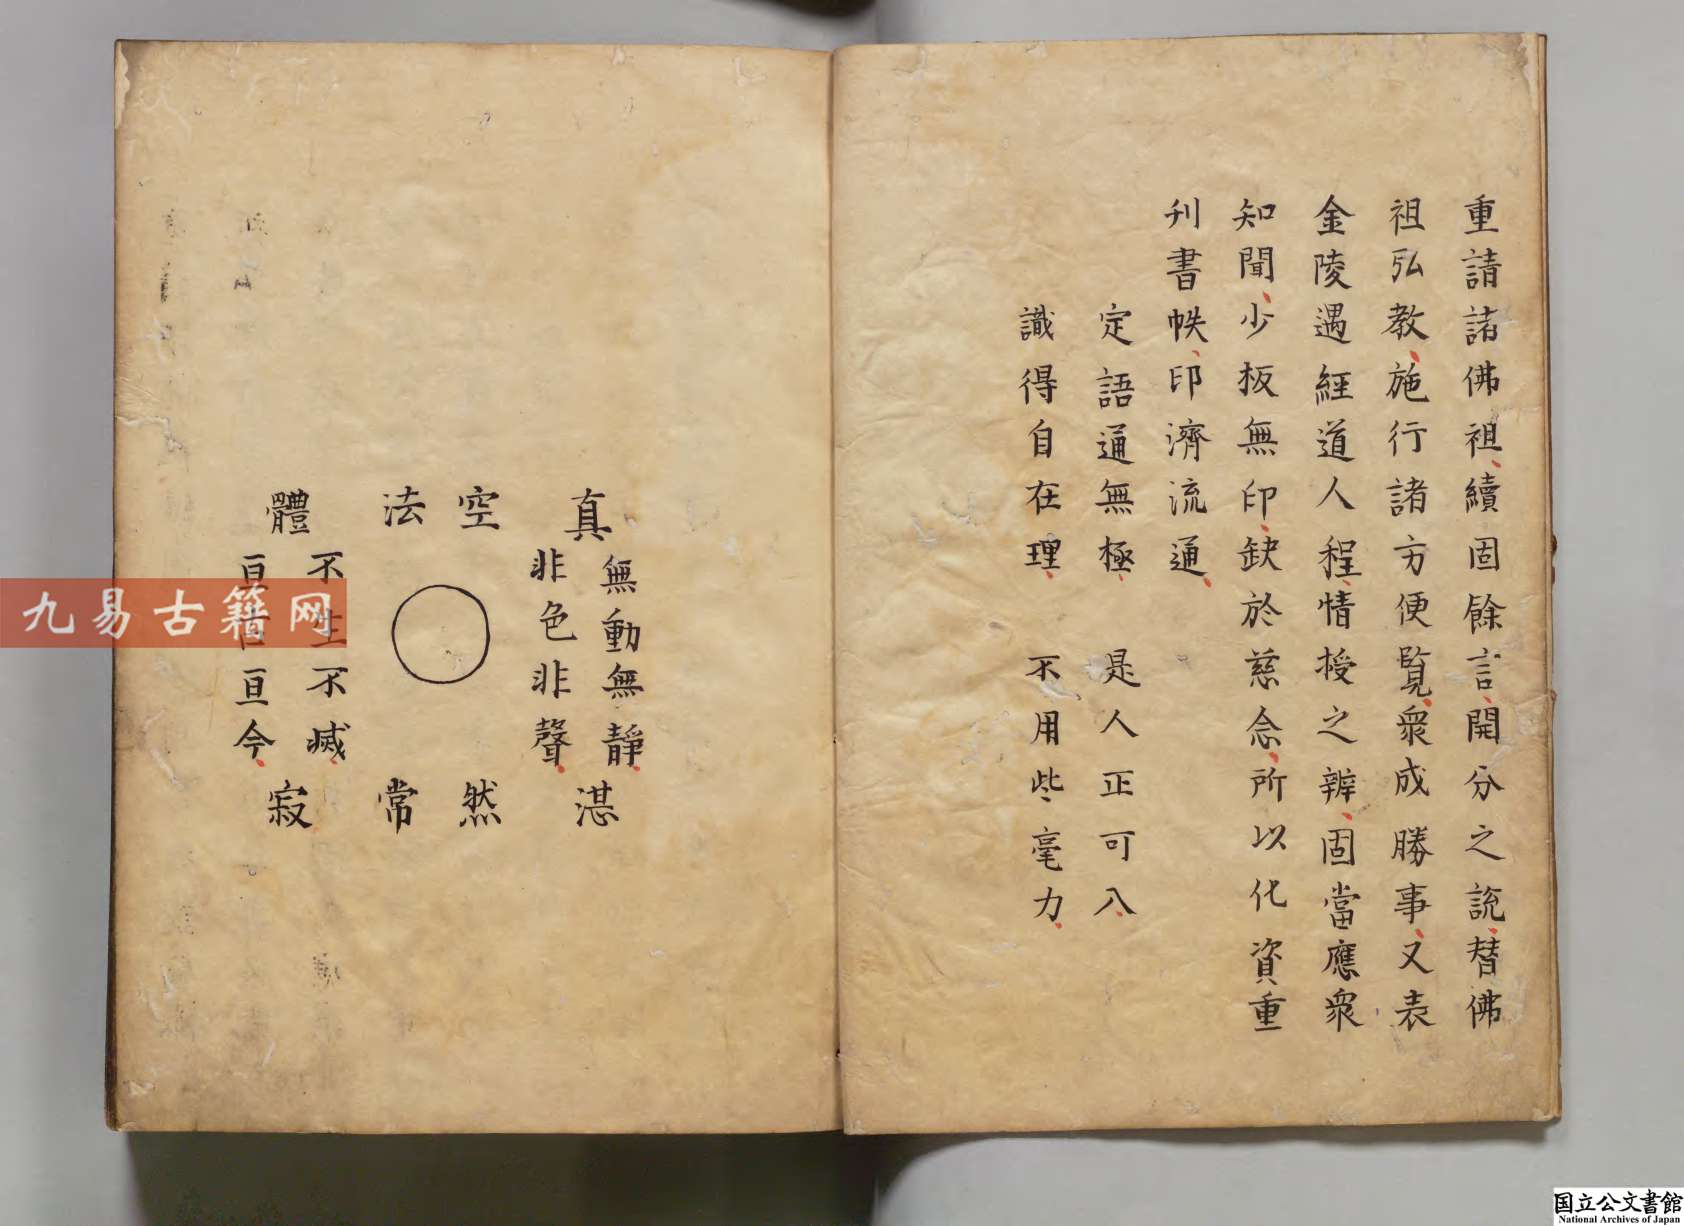 重請諸佛祖續固餘言開分之說替佛
祖弘教施行諸方便覧衆成勝事又表
金陵遇經道人程情授之辨固當應衆
知聞少板無印缺於慈念所以化資重
刊書帙印濟流通
定語通無極 是人正可入
識得自在理 不用些毫力
真空法體
無動無靜
非色非聲
不生不滅
亘亘今
湛然常寂
九易古籍网
国立公文書館
National Archives of Japan